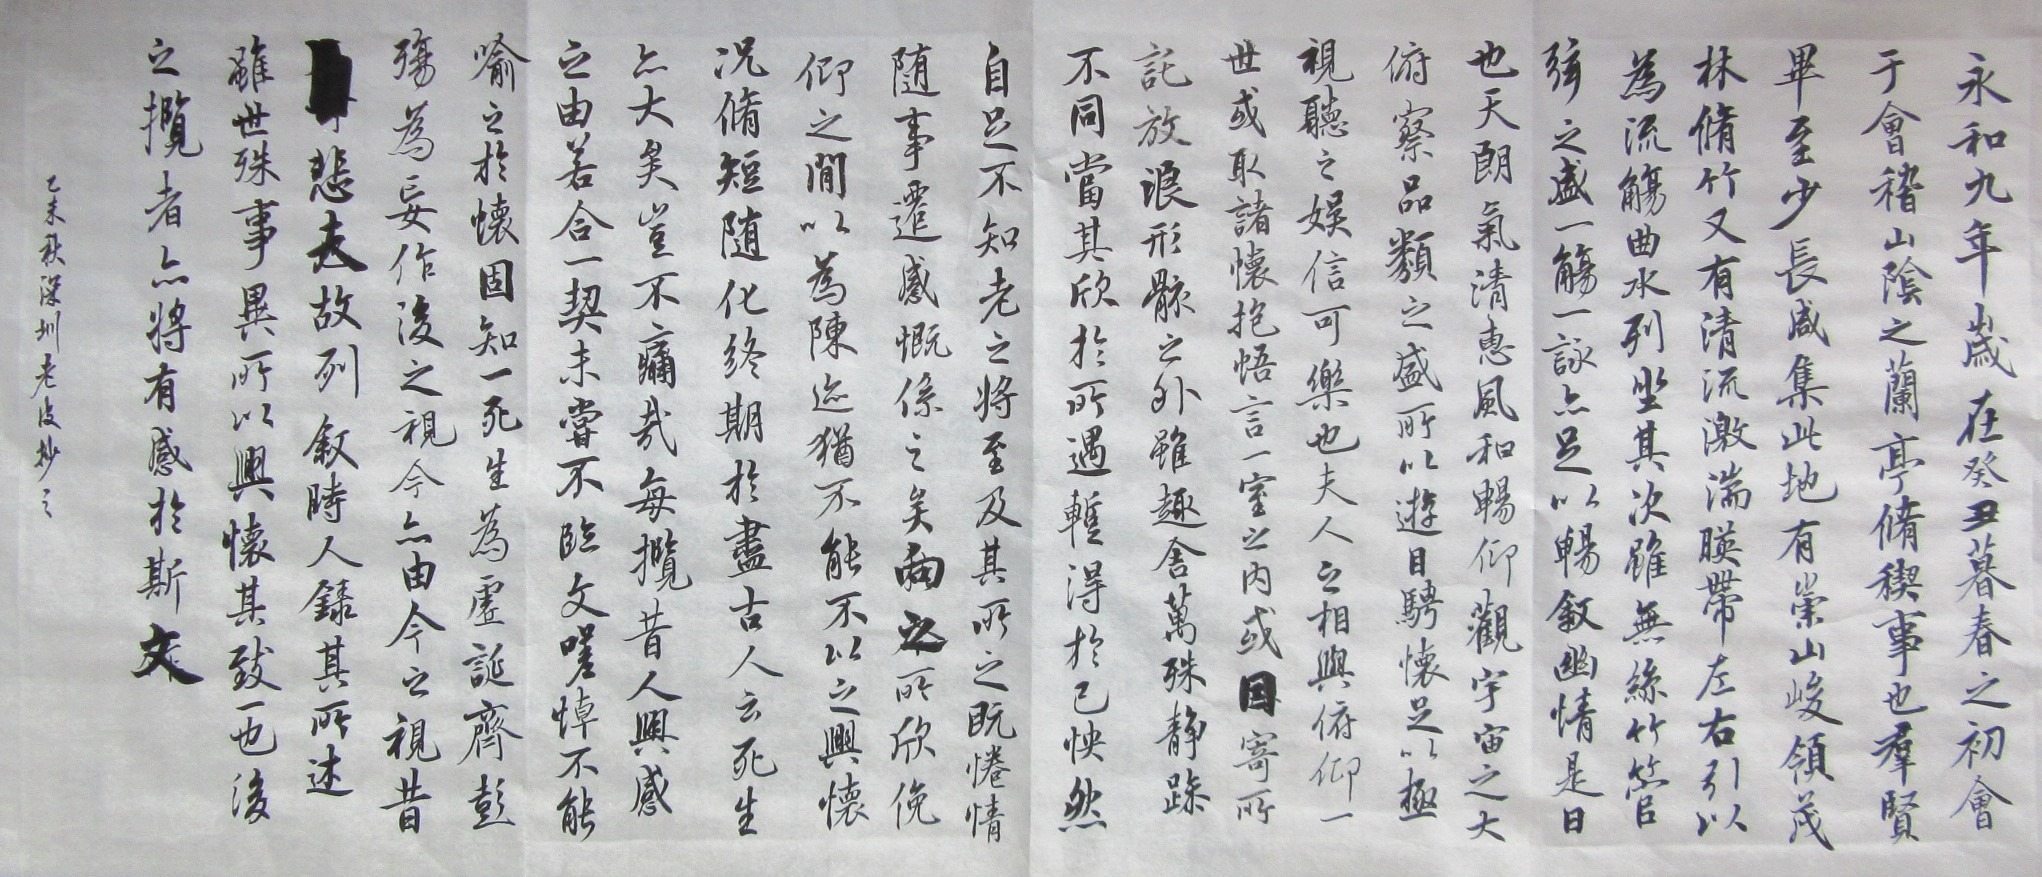 永和九年歲在癸丑暮春之初會
于會稽山陰之蘭亭脩稧事也羣賢
畢至少長咸集此地有崇山峻領茂
林脩竹又有清流激湍暎帶左右引以
為流觴曲水列坐其次雖無絲竹管
弦之盛一觴一詠亦足以暢敘幽情是日
也天朗氣清惠風和暢仰觀宇宙之大
俯察品類之盛所以遊目騁懷足以極
視聽之娛信可樂也夫人之相與俯仰一
世或取諸懷抱悟言一室之內或因寄所
託放浪形骸之外雖趣舍萬殊静躁
不同當其欣於所遇暫得於己怏然
自足不知老之將至及其所之既惓情
隨事遷感慨係之矣向之所欣俛
仰之間以為陳迹猶不能不以之興懷
況脩短隨化終期於盡古人云死生
亦大矣豈不痛哉每攬昔人興感
之由若合一契未嘗不臨文嗟悼不能
喻之於懷固知一死生為虛誕齊彭
殤為妄作後之視今亦由今之視昔
悲夫故列敘時人錄其所述
雖世殊事異所以興懷其致一也後
之攬者亦將有感於斯文
乙未秋深圳老皮抄之